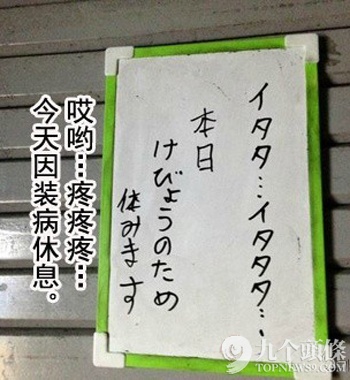 イタタ…イタタタ…
本日
けびょうのため
休みます
哎哟…疼疼疼…
今天因装病休息。
九个頭條
TOPNEWS9.COM